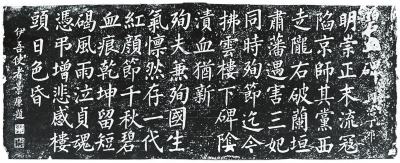 血碑
明崇正末流寇
陷京師其黨西
支隴右破蘭垣
肅藩遇害三妃
同時殉節迄今
拂雲樓下碑陰
漬血猶新
殉夫兼殉國生
氣懍然存一代
紅顏節千秋碧
血痕乾坤留短
碣風雨泣貞魂
憑弔增悲感樓
頭日色昏
伊吾使者景廉題